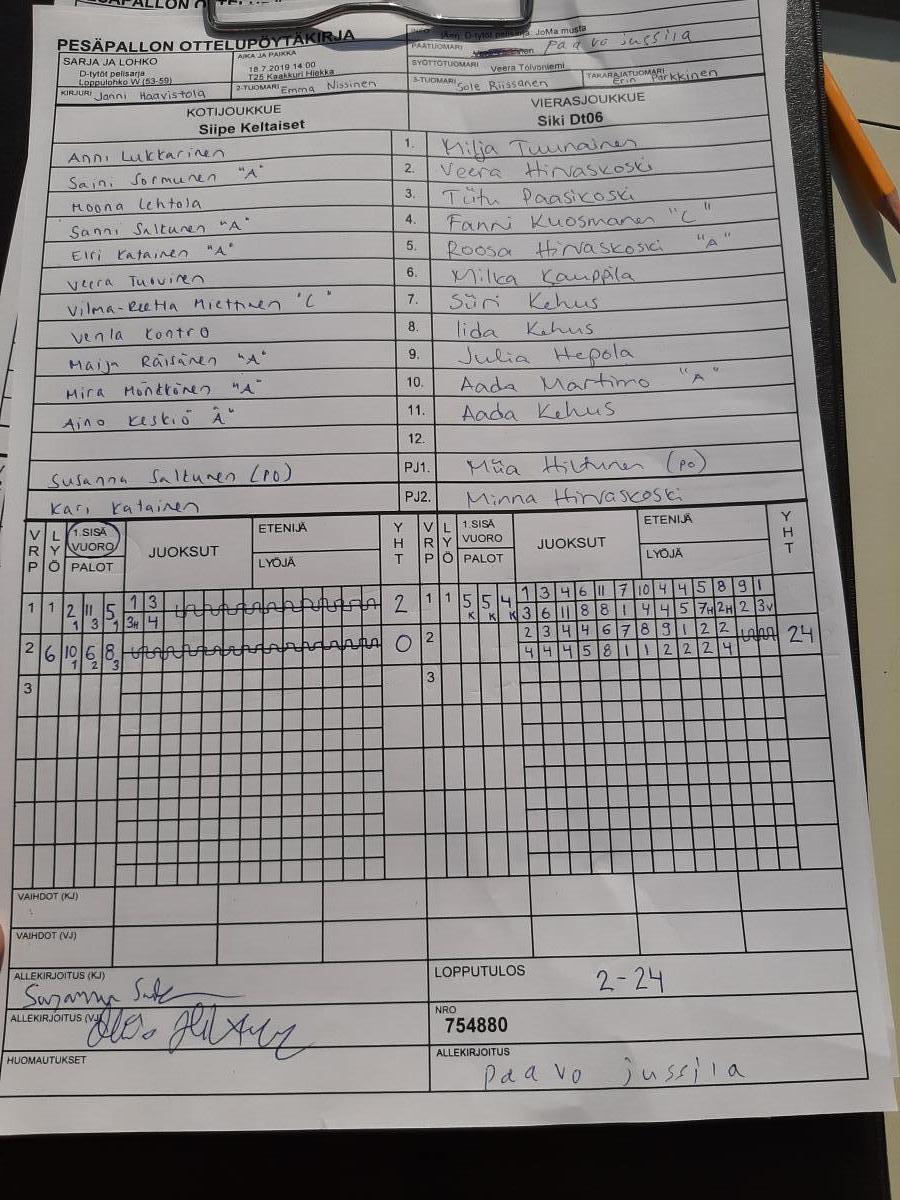 PESÄPALLON OTTELUPÖYTÄKIRJA
SARJA JA LOHKO
D-tytöt pelisarja
Loppulohko W (53-59)
AIKA JA PAIKKA
18.7.2019 14:00
T25 Kaakkuri Hiekka
KIRJURI Janni Haavistola
2-TUOMARI Emma Nissinen
INFO D-tytöt pelisarja JoMa musta
PÄÄTUOMARI paavo jussila
SYÖTTÖTUOMARI Veera Toivoniemi
3-TUOMARI Sole Riissanen
TAKARAJATUOMARI Erin Parkkinen
KOTIJOUKKUE
Siipe Keltaiset
VIERASJOUKKUE
Siki Dt06
Anni Lukkarinen 1. Milja Tuunainen
Saini Sormunen "A" 2. Veera Hirvaskoski
Moona Lehtola 3. Tiitu Paasikoski
Sanni Saltunen "A" 4. Fanni Kuosmanen "C"
Elri Katainen "A" 5. Roosa Hirvaskoski "A"
Veera Tuovinen 6. Milka Kauppila
Vilma-Reetta Miettinen "C" 7. Siiri Kehus
Venla Kontro 8. Iida Kehus
Maija Räisänen "A" 9. Julia Hepola
Mira Mönkkönen "A" 10. Aada Martimo "A"
Aino Keskiö "A" 11. Aada Kehus
12.
Susanna Saltunen (PO) PJ1. Miia Hiltunen (PO)
Kari Katainen PJ2. Minna Hirvaskoski
VRP LYÖ 1.SISÄ VUORO PALOT JUOKSUT ETENIJÄ LYÖJÄ YHT VRP LYÖ 1.SISÄ VUORO PALOT JUOKSUT ETENIJÄ LYÖJÄ YHT
1 1 2 11 5 1 3 2 1 1 5 5 4 1 3 4 6 11 7 10 4 4 5 8 9 1
1 3 1 3H 4 K K K 3 6 11 8 8 1 4 4 5 7H 2H 2 3V
2 6 10 6 8 0 2 2 3 4 4 6 7 8 9 1 2 2 24
1 2 3 4 4 4 5 8 1 1 2 2 2 4
3 3
VAIHDOT (KJ)
VAIHDOT (VJ)
ALLEKIRJOITUS (KJ)
LOPPUTULOS 2-24
ALLEKIRJOITUS (VJ)
NRO
754880
HUOMAUTUKSET
ALLEKIRJOITUS
paavo jussila